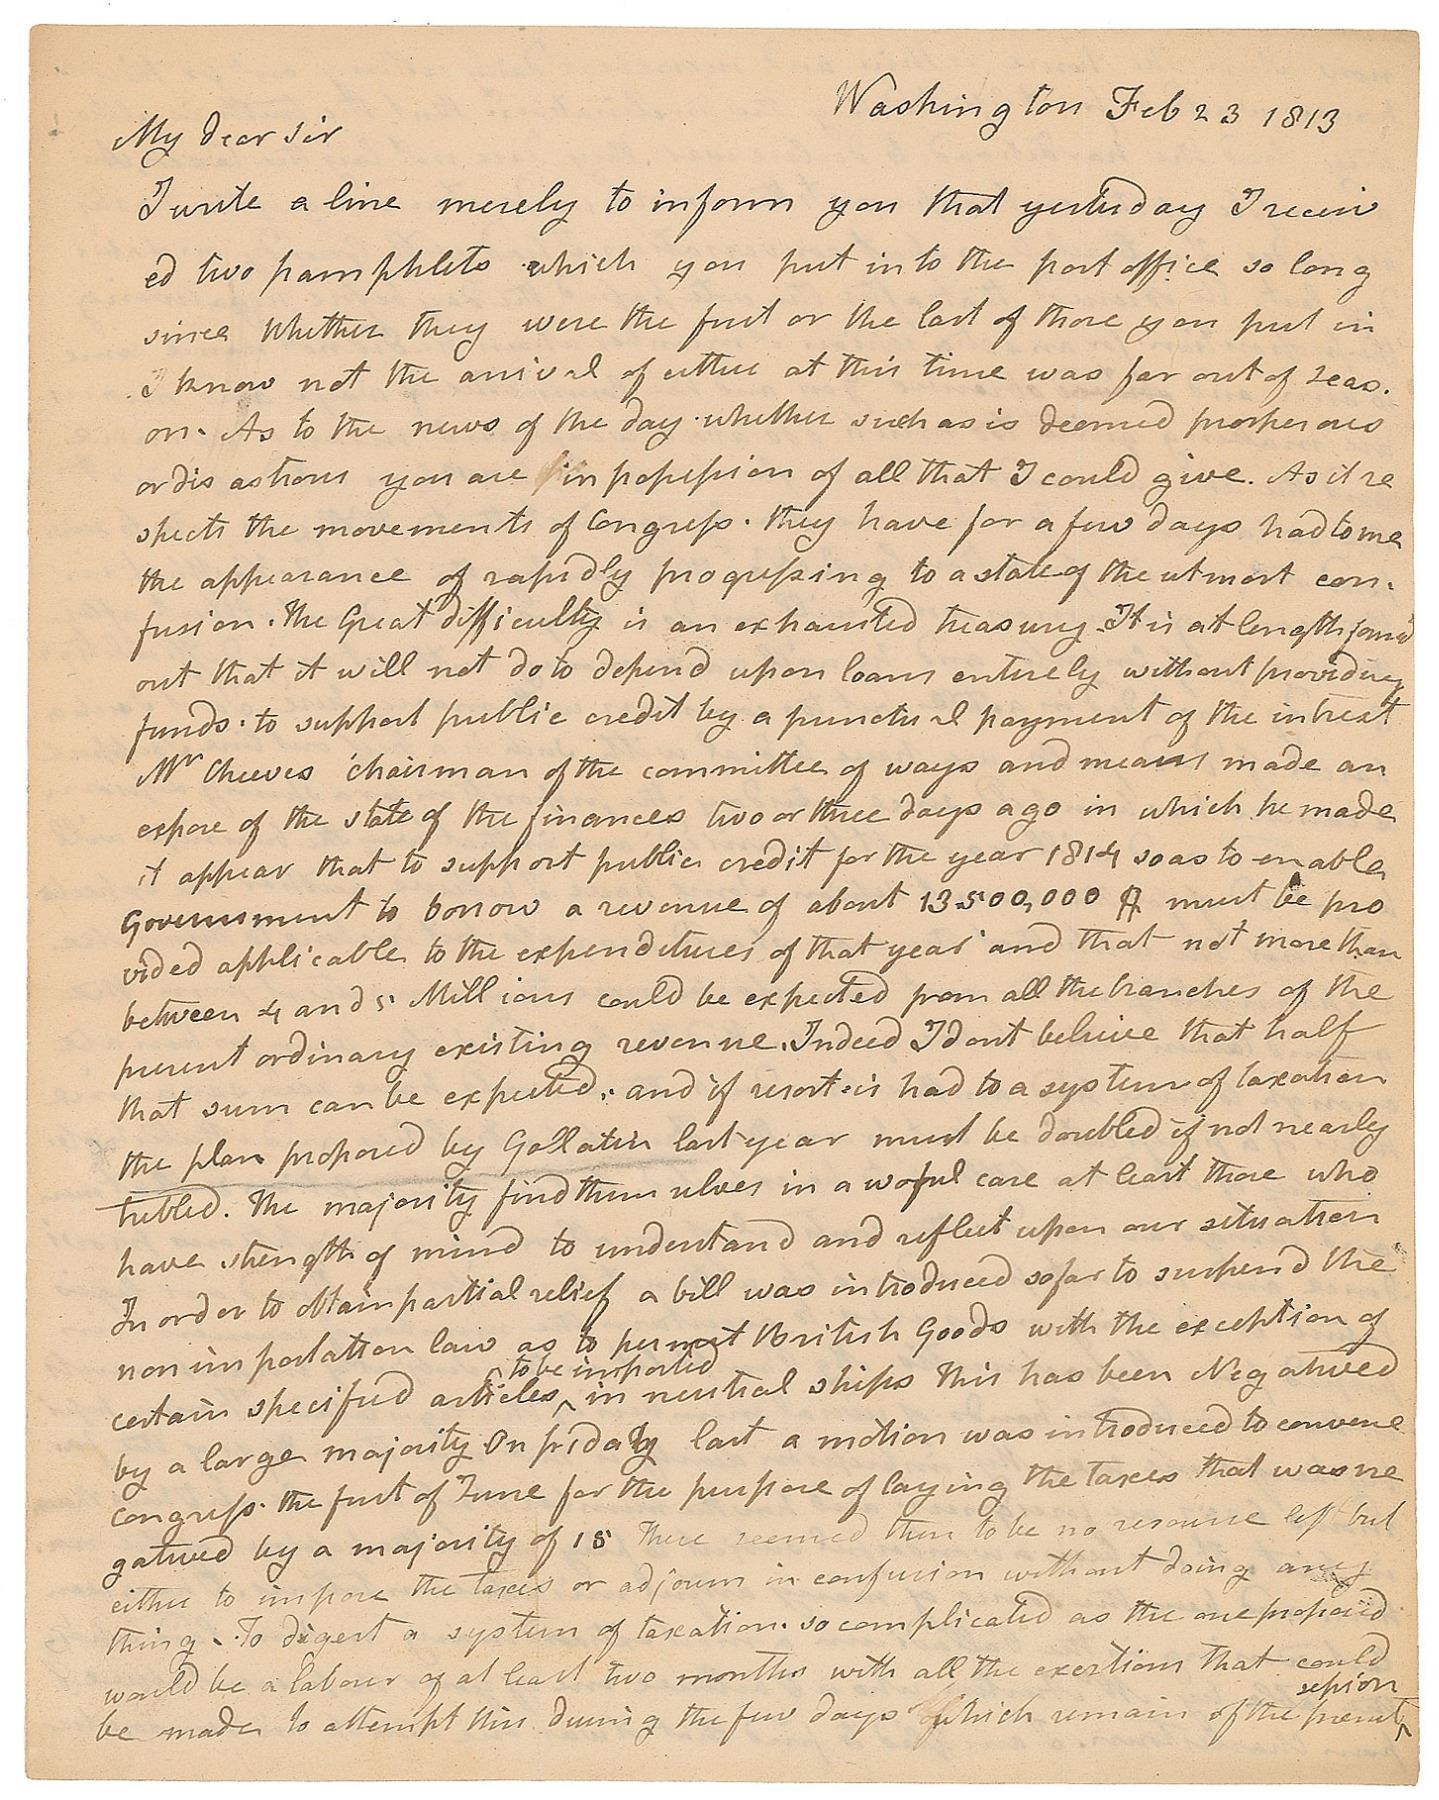 Washington Feb 23 1813
My dear Sir
I write a line merely to inform you that yesterday I receiv
ed two pamphlets which you put into the post office so long
since Whether they were the first or the last of those you put in
I know not the arival of either at this time was far out of seas.
on. As to the news of the day whether such as is deemed prosperous
or disastrous you are in possession of all that I could give. As it re
spects the movements of Congress. they have for a few days had to me
the appearance of rapidly progressing to a state of the utmost con.
fusion. The Great difficulty is an exhausted treasury. It is at length found
out that it will not do to depend upon loans entirely without providing
funds. to support public credit by a punctual payment of the intrest
Mr Cheeves chairman of the committee of ways and means made an
expose of the state of the finances two or three days ago in which he made
it appear that to support public credit for the year 1814 so as to enable
Government to borrow a revenue of about 13.500,000 $ must be pro
vided applicable to the expenditures of that year and that not more than
between 4 and 5 Millions could be expected from all the branches of the
present ordinary existing revenue. Indeed I dont believe that half
that sum can be expected. and if resort is had to a system of taxation
the plan proposed by Gallatin last year must be doubled if not nearly
trebled. The majority find themselves in a woful case at least those who
have strength of mind to understand and reflect upon our situation
In order to obtain partial relief a bill was introduced so far to suspend the
non importation law as to permit British Goods with the exception of
certain specified articles to be imported in neutral ships This has been Negatived
by a large majority On friday last a motion was introduced to convene
congress. the first of June for the purpose of laying the taxes that was ne
gatived by a majority of 15 There seemed then to be no resource left but
either to impose the taxes or adjourn in confusion without doing any
thing. To digest a system of taxation. so complicated as the one proposed
would be a labour of at least two months with all the exertions that could
be made to attempt this during the few days which remain of the present session